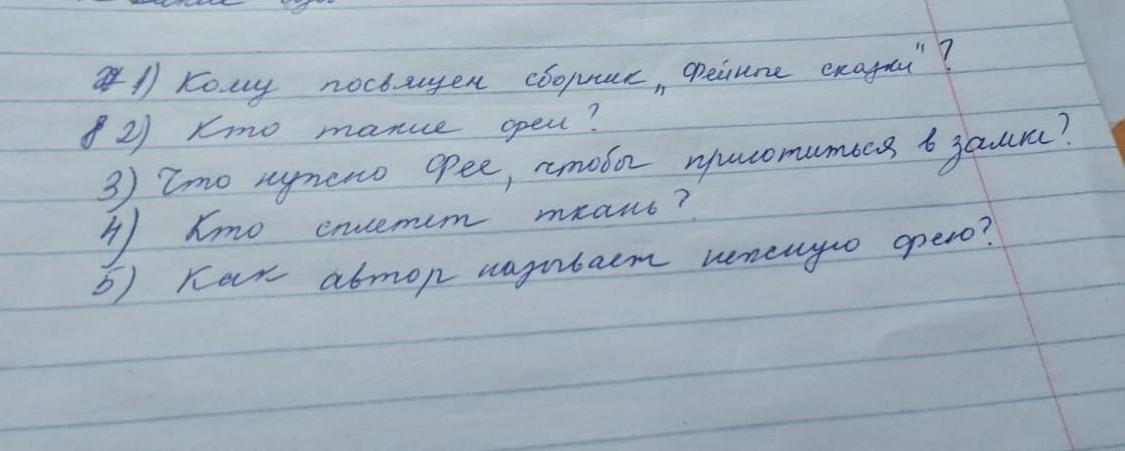 1) Кому посвящен сборник „Фейные сказки"?
2) Кто такие феи?
3) Что нужно Фее, чтобы приютиться в замке?
4) Кто сплетет ткань?
5) Как автор называет нежную фею?